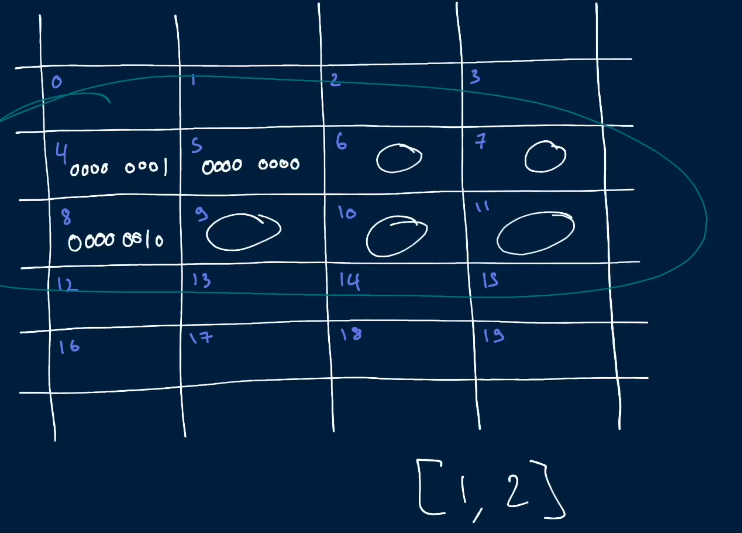 0 1 2 3
4 0000 0001 5 0000 0000 6 0 7 0
8 0000 0010 9 0 10 0 11 0
12 13 14 15
16 17 18 19
[1, 2]